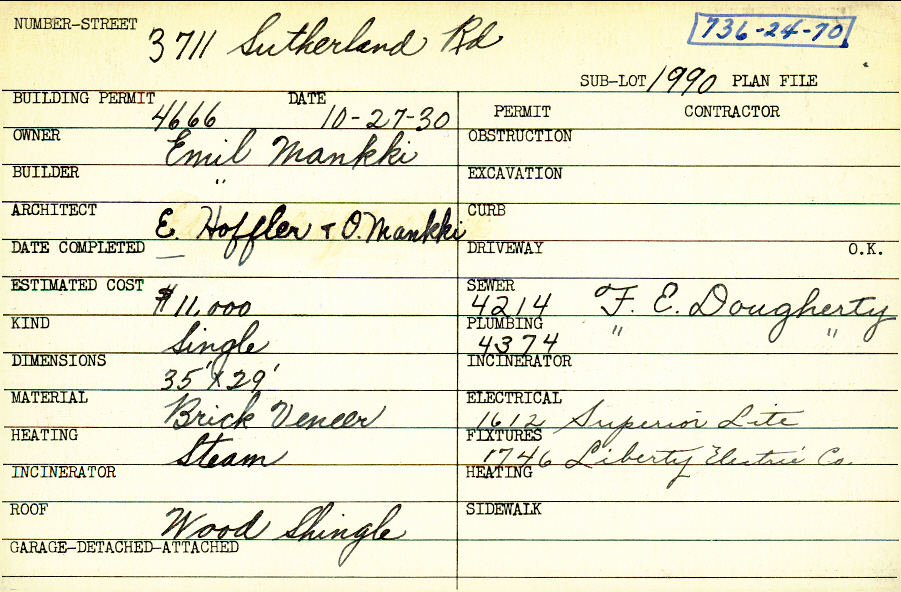 NUMBER-STREET 3711 Sutherland Rd 736-24-70
SUB-LOT 1990 PLAN FILE
BUILDING PERMIT 4666 DATE 10-27-30
OWNER Emil Mankki
BUILDER "
ARCHITECT E. Hoffler & O. Mankki
DATE COMPLETED —
ESTIMATED COST $11,000
KIND Single
DIMENSIONS 35' x 29'
MATERIAL Brick Veneer
HEATING Steam
INCINERATOR
ROOF Wood Shingle
GARAGE-DETACHED-ATTACHED
PERMIT CONTRACTOR
OBSTRUCTION
EXCAVATION
CURB
DRIVEWAY O.K.
SEWER 4214 F. E. Dougherty
PLUMBING 4374 " "
INCINERATOR
ELECTRICAL 1612 Superior Lite
FIXTURES 1746 Liberty Electric Co.
HEATING
SIDEWALK